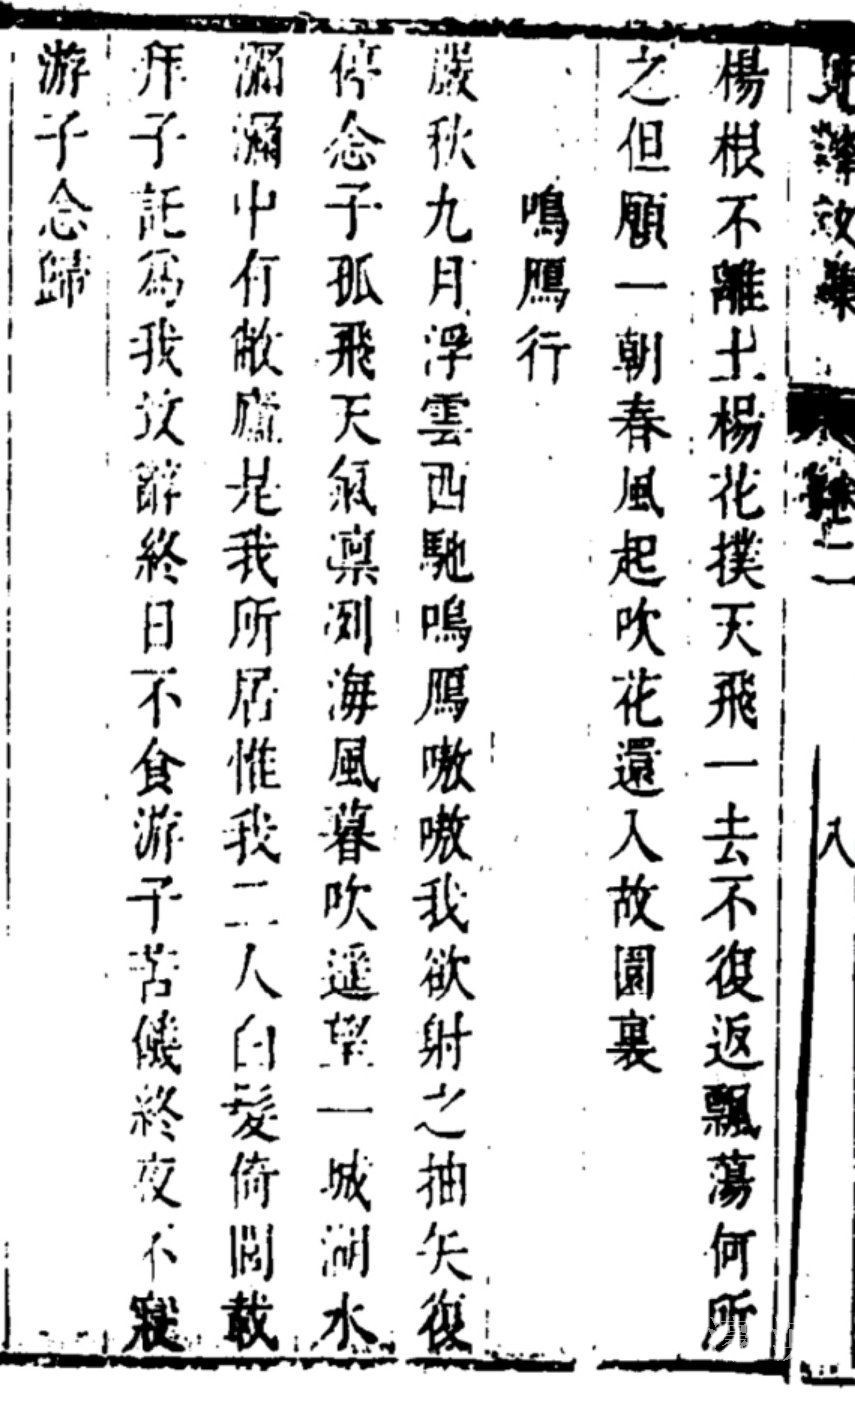 卷二
八
楊根不離土楊花撲天飛一去不復返飄蕩何所
之但願一朝春風起吹花還入故園裏
鳴鴈行
嚴秋九月浮雲西馳鳴鴈嗷嗷我欲射之抽矢復
停念子孤飛天氣凛冽海風暮吹遥望一城湖水
瀰瀰中有敝廬是我所居惟我二人白髮倚閭載
拜子託為我致辭終日不食游子苦饑終夜不寢
游子念歸